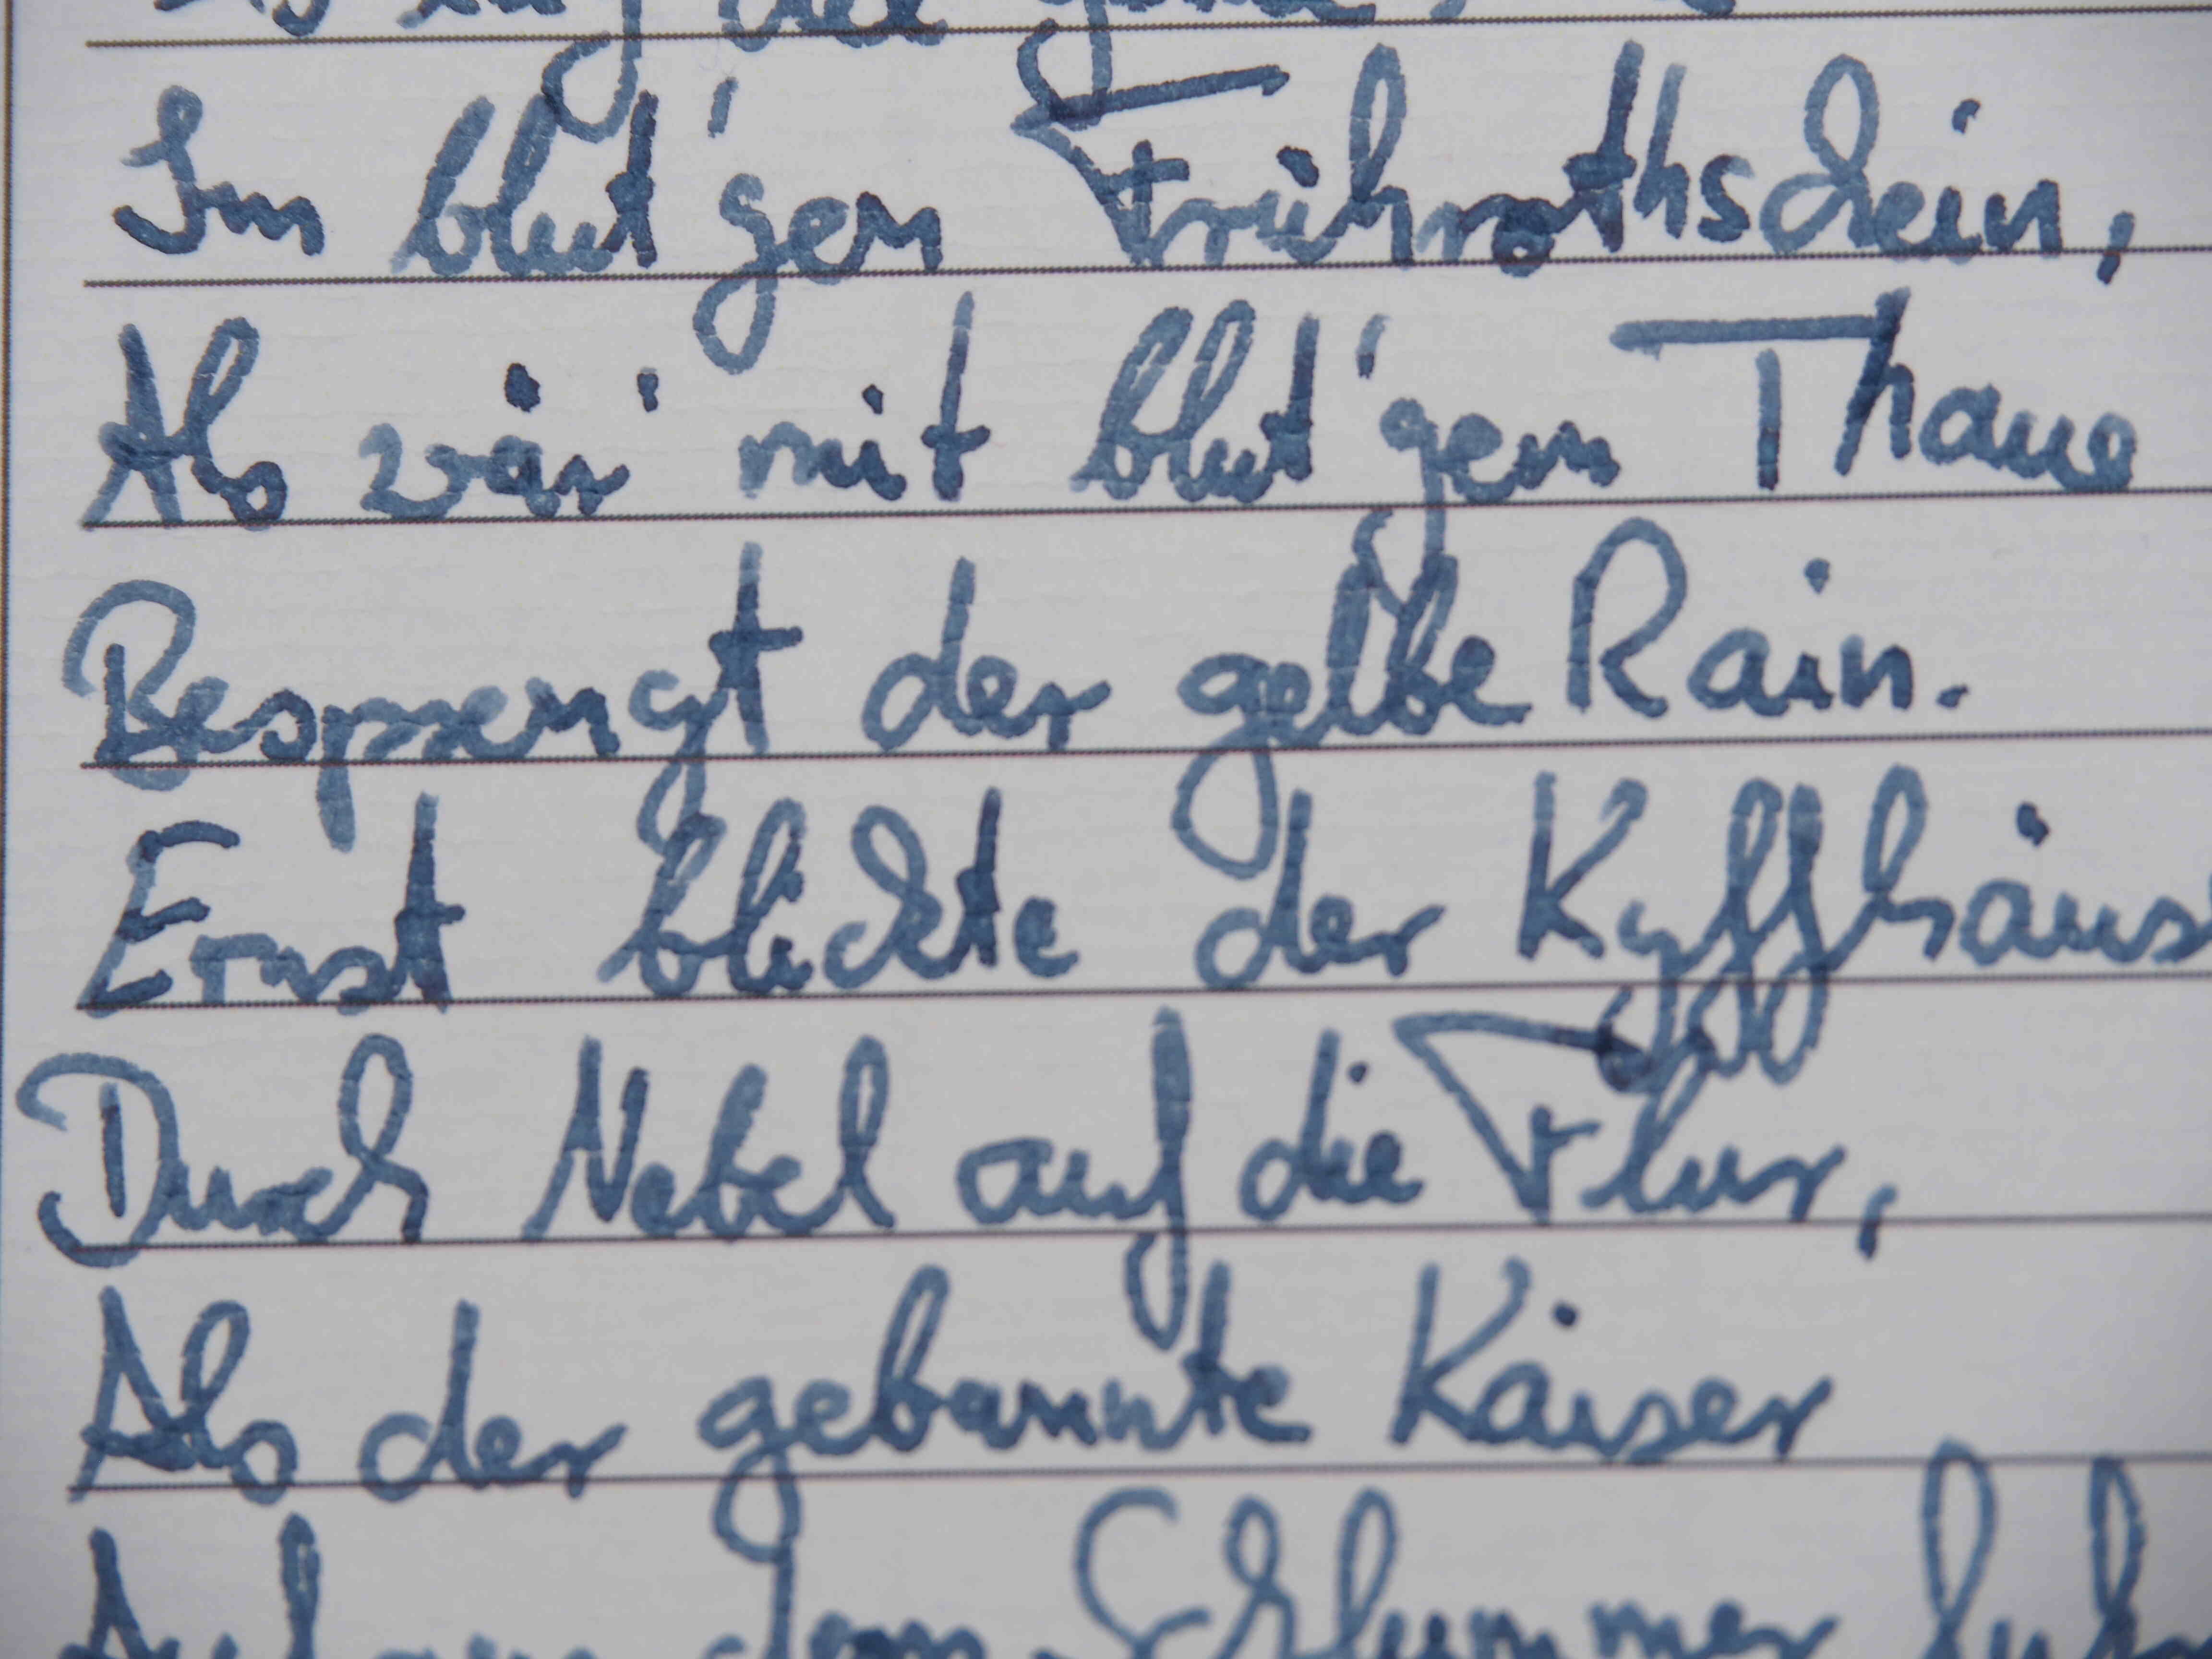 Im blut'gen Frührothschein,
Als wär' mit blut'gem Thaue
Besprengt der gelbe Rain.
Ernst blickte der Kyffhäus
Durch Nebel auf die Flur,
Als der gebannte Kaiser
dem Schlummer fuhr